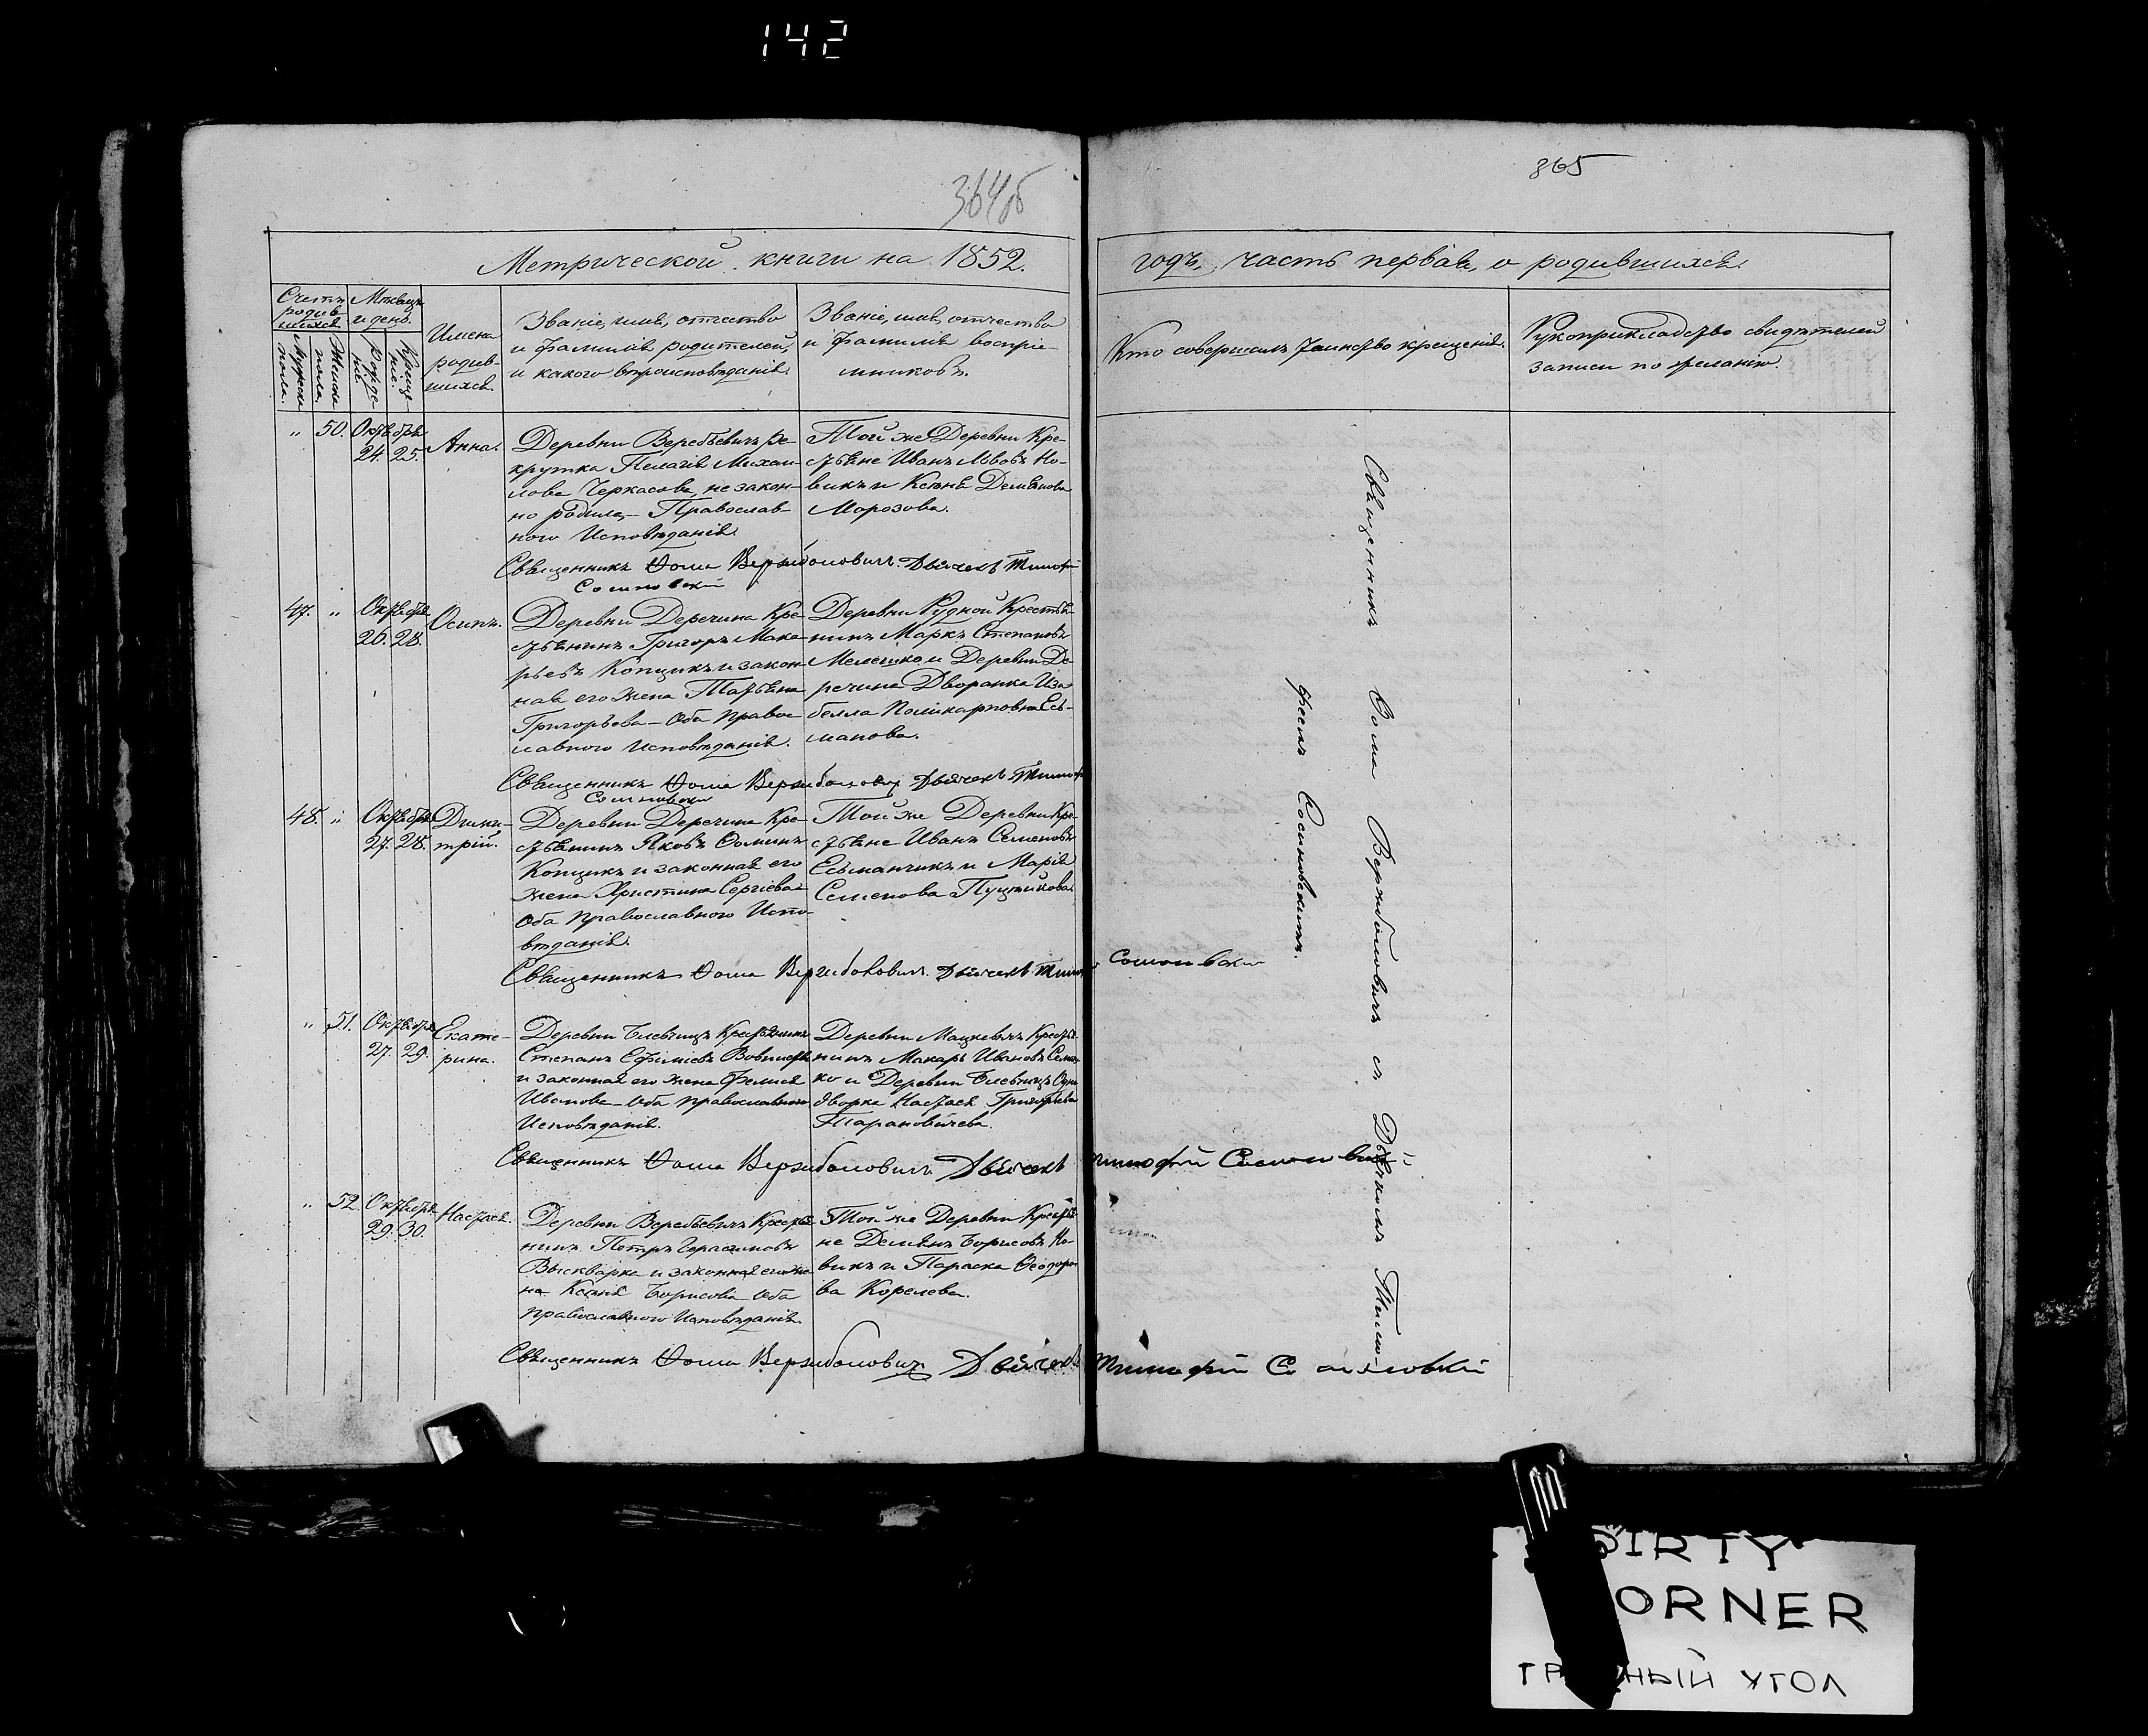 142
364об
365
Метрической книги на 1852.
годъ, часть первая, о родившихся.
Счетъ родив-шихся
Мѣсяцъ и день.
Мужеска пола.
Женска пола.
Рожде-нія.
Креще-нія.
Имена родив-шихся.
Званіе, имя, отчество
и фамилія родителей,
и какого вѣроисповѣданія.
Званіе, имя, отчество
и фамилія воспрі-
емниковъ.
Кто совершалъ таинство крещенія.
Рукоприкладство свидѣтелей
записи по желанію.
" 50. Октября
24. 25.
Анна.
Деревни Веребьевичъ ре-
крутка Пелагія Михаи-
лова Черкасова, не закон-
но родила,- Православ-
ного Исповѣданія.
Той же Деревни Кре-
стьяне Иванъ Львовъ Но-
викъ и Ксенія Демьянова
Морозова.
Священникъ Ѳома Вержболовичъ. Дьячекъ Тимофей
Сосновскій
47. " Октября
26. 28.
Осипъ.
Деревни Деречина Кре-
стьянинъ Григоръ Мака-
рьевъ Копцикъ и закон-
ная его жена Татьяна
Григорьева - Оба Правос-
лавного Исповѣданія.
Деревни Рудной Крестья-
нинъ Маркъ Степановъ
и Деревни Де-
речина Дворянка Иза-
белла Поликарповна Есь-
манова.
Священникъ Ѳома Вержболовичъ Дьячекъ Тимофей
Сосновскій
48. " Октября
27. 28.
Дими-
трій.
Деревни Деречина Кре-
стьянинъ Яковъ Ѳоминъ
Копцикъ и законная его
жена Христина Сергіева-
Оба Православного Испо-
вѣданія.
Той же Деревни Кре-
стьяне Иванъ Семеновъ
Есьманчикъ и Марія
Семенова
Священникъ Ѳома Вержболовичъ. Дьячекъ Тимофей Сосновскій
" 51. Октября
27. 29.
Екате-
рина.
Деревни Крестьянинъ
Степанъ Ефиміевъ
и законная его жена
Иванова - Оба Православного
Исповѣданія.
Деревни Мацкевичъ Крестья-
нинъ Макаръ Ивановъ
ко и Деревни Одно-
дворка Настасія Григорьева
Тарановичева.
Священникъ Ѳома Вержболовичъ Дьячекъ Тимофей Сосновскій
" 52. Октября
29. 30.
Настасія.
Деревни Веребьевичъ Крестья-
нинъ Петръ Герасимовъ
Выскварка и законная его же-
на Ксенія Борисова - Оба
Православного Исповѣданія.
Той же Деревни Крестья-
не Демьянъ Борисовъ Но-
викъ и Параска Ѳеодоро-
ва Королева.
Священникъ Ѳома Вержболовичъ Дьячекъ Тимофей Сосновскій
Священникъ Ѳома Вержболовичъ съ Дьячкомъ Тимо-
феемъ Сосновскимъ.
DIRTY
ORNER
ГР НЫЙ УГОЛ